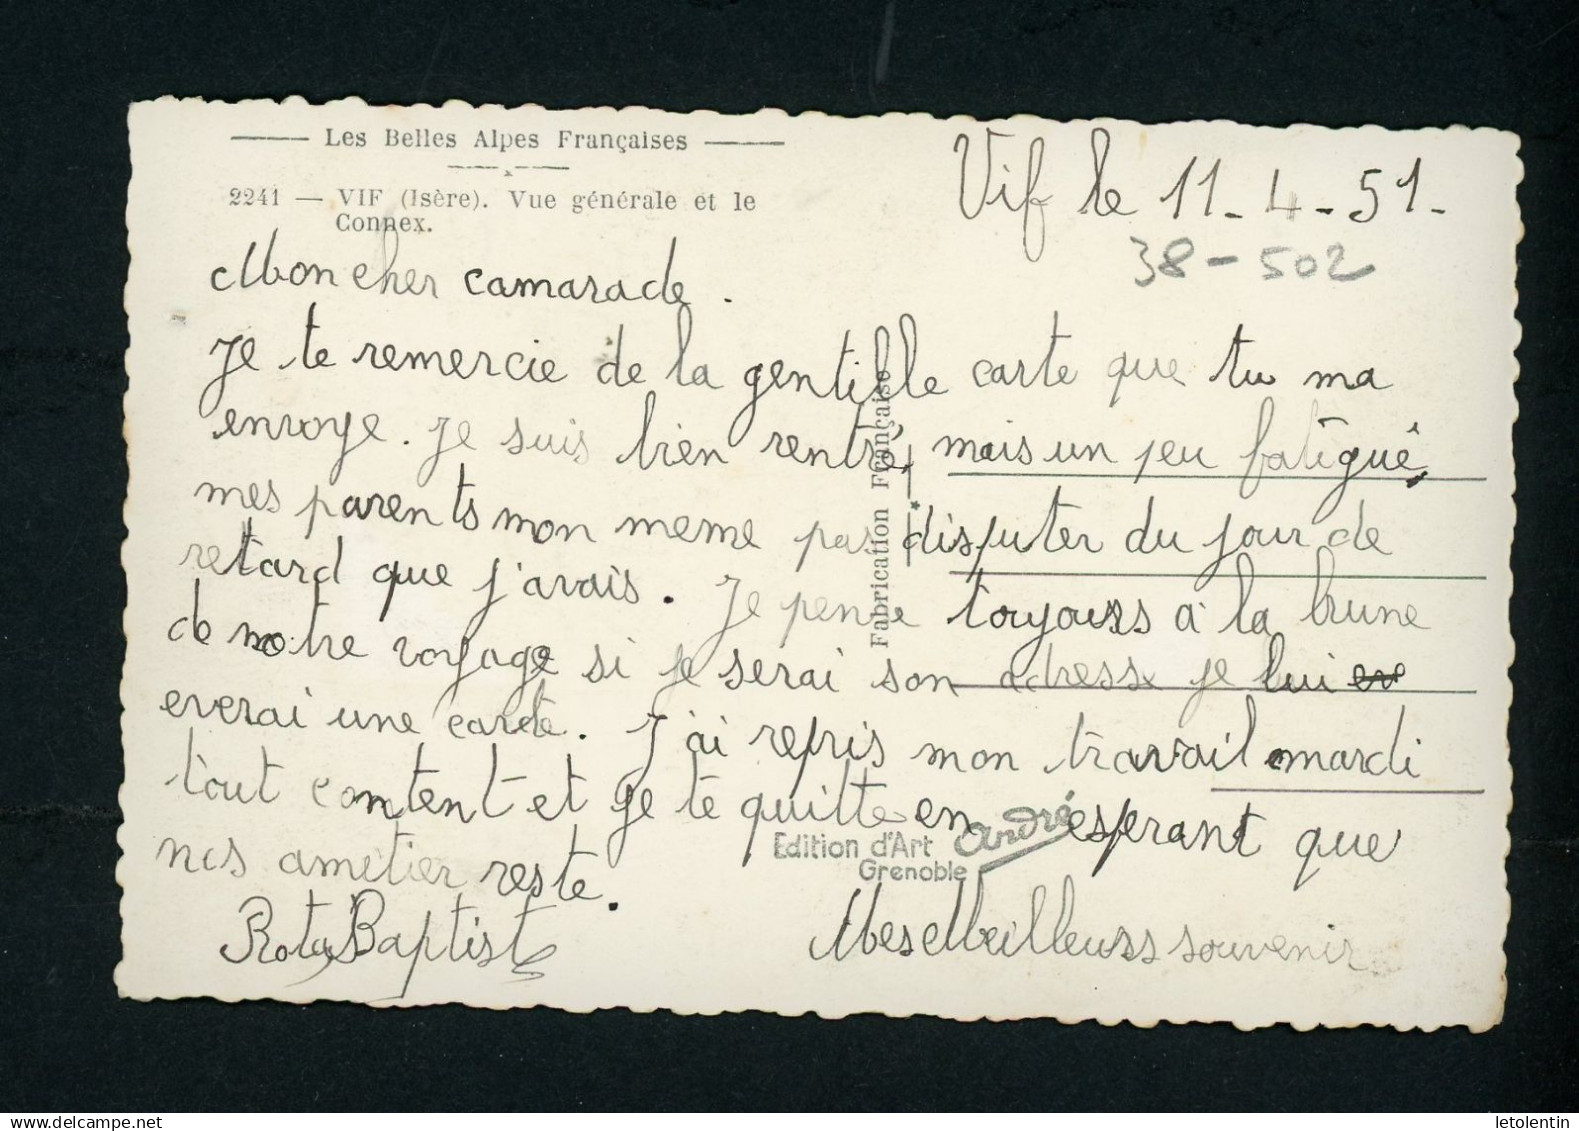 Les Belles Alpes Françaises
2241 — VIF (Isère). Vue générale et le
Connex.
Vif le 11-4-51-
38-502
Mon cher camarade.
Je te remercie de la gentille carte que tu ma
envoye. Je suis bien rentré, mais un peu fatigué,
mes parents mon meme pas disputer du jour de
retard que j'avais. Je pense toujours à la brune
de notre voyage si je serai son adresse je lui
everai une carte. J'ai repris mon travail mardi
tout content et je te quitte en esperant que
nos ametier reste.
Rota Baptist
Mes Meilleurs souvenir
Fabrication Française
Edition d'Art André
Grenoble
letolentin
https://www.delcampe.net